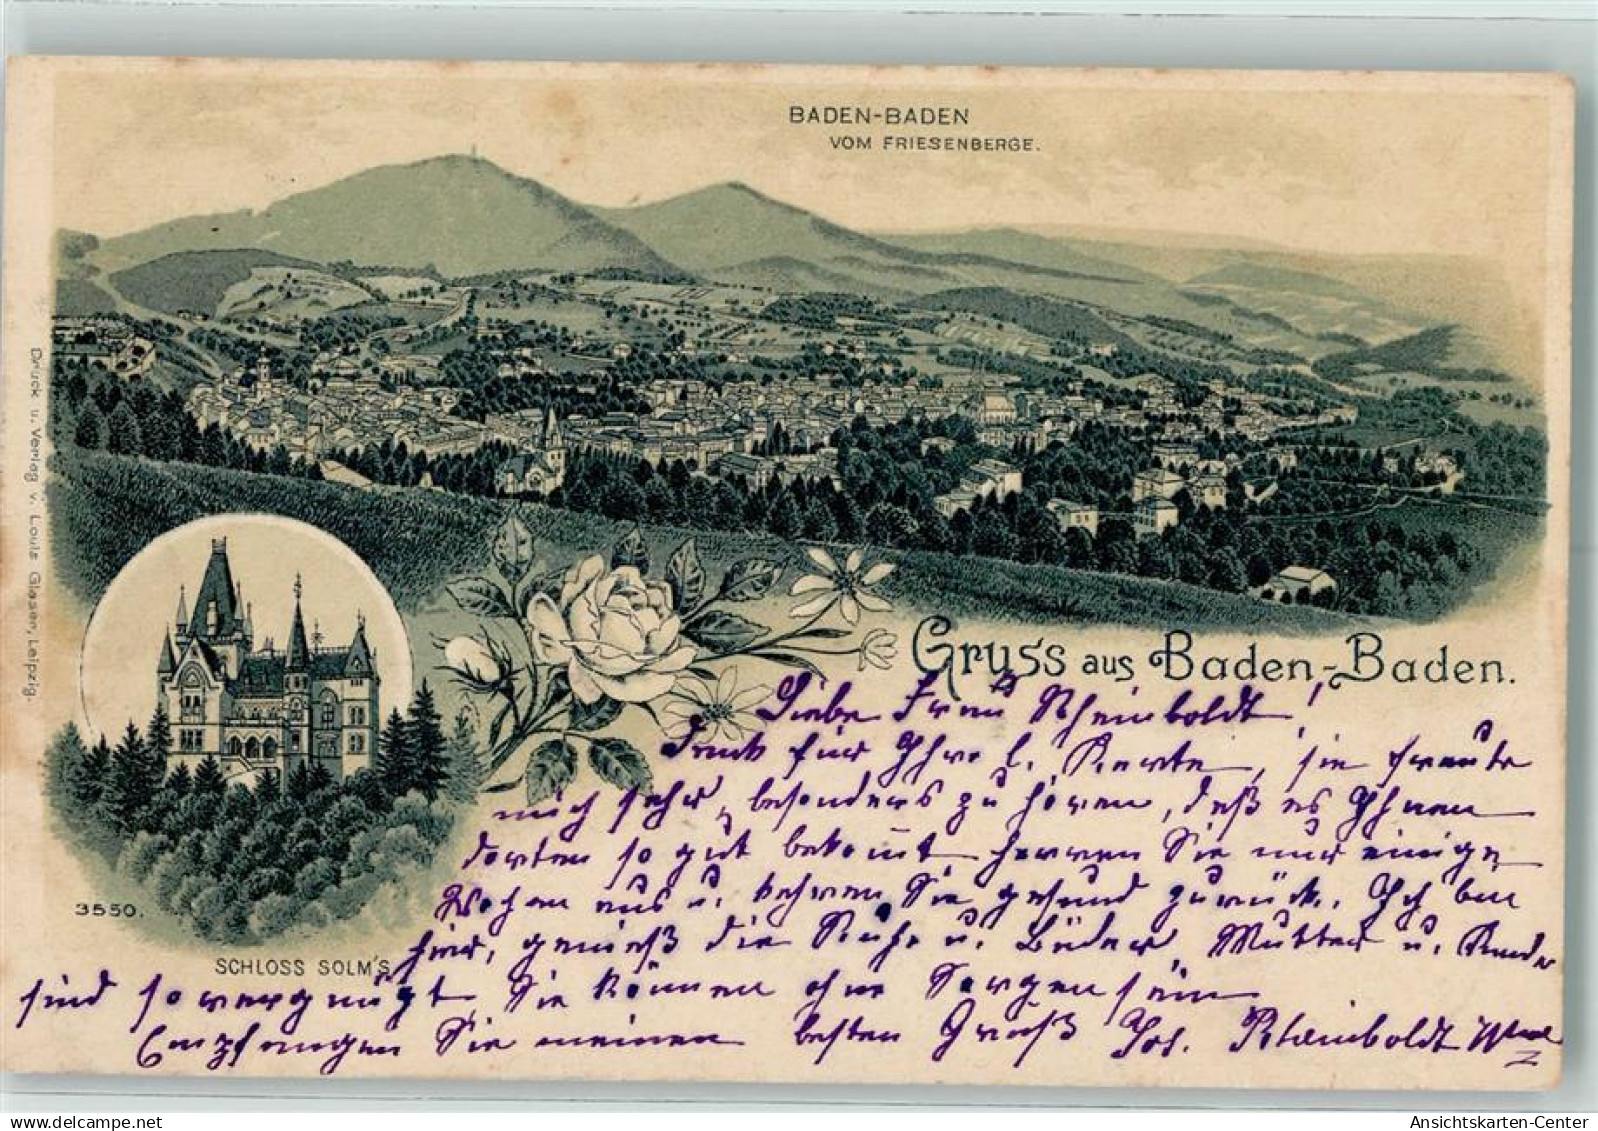 BADEN-BADEN
VOM FRIESENBERGE.
Druck u. Verlag v. Louis Glaser, Leipzig.
Gruss aus Baden-Baden.
Liebe Frau Rheinboldt!
Dank für Ihre l. Karte, sie freute
mich sehr, besonders zu hören, daß es Ihnen
dorten so gut bekommt harren Sie nur einige
Wochen aus u. kehren Sie gesund zurück. Ich bin
hier, genieß die Ruhe u. Bäder, Mutter u. Kinder
sind so vergnügt, Sie können ohne Sorgen sein
Empfangen Sie meinen besten Gruß Jos. Rheinboldt
3550.
SCHLOSS SOLM'S
Ansichtskarten-Center